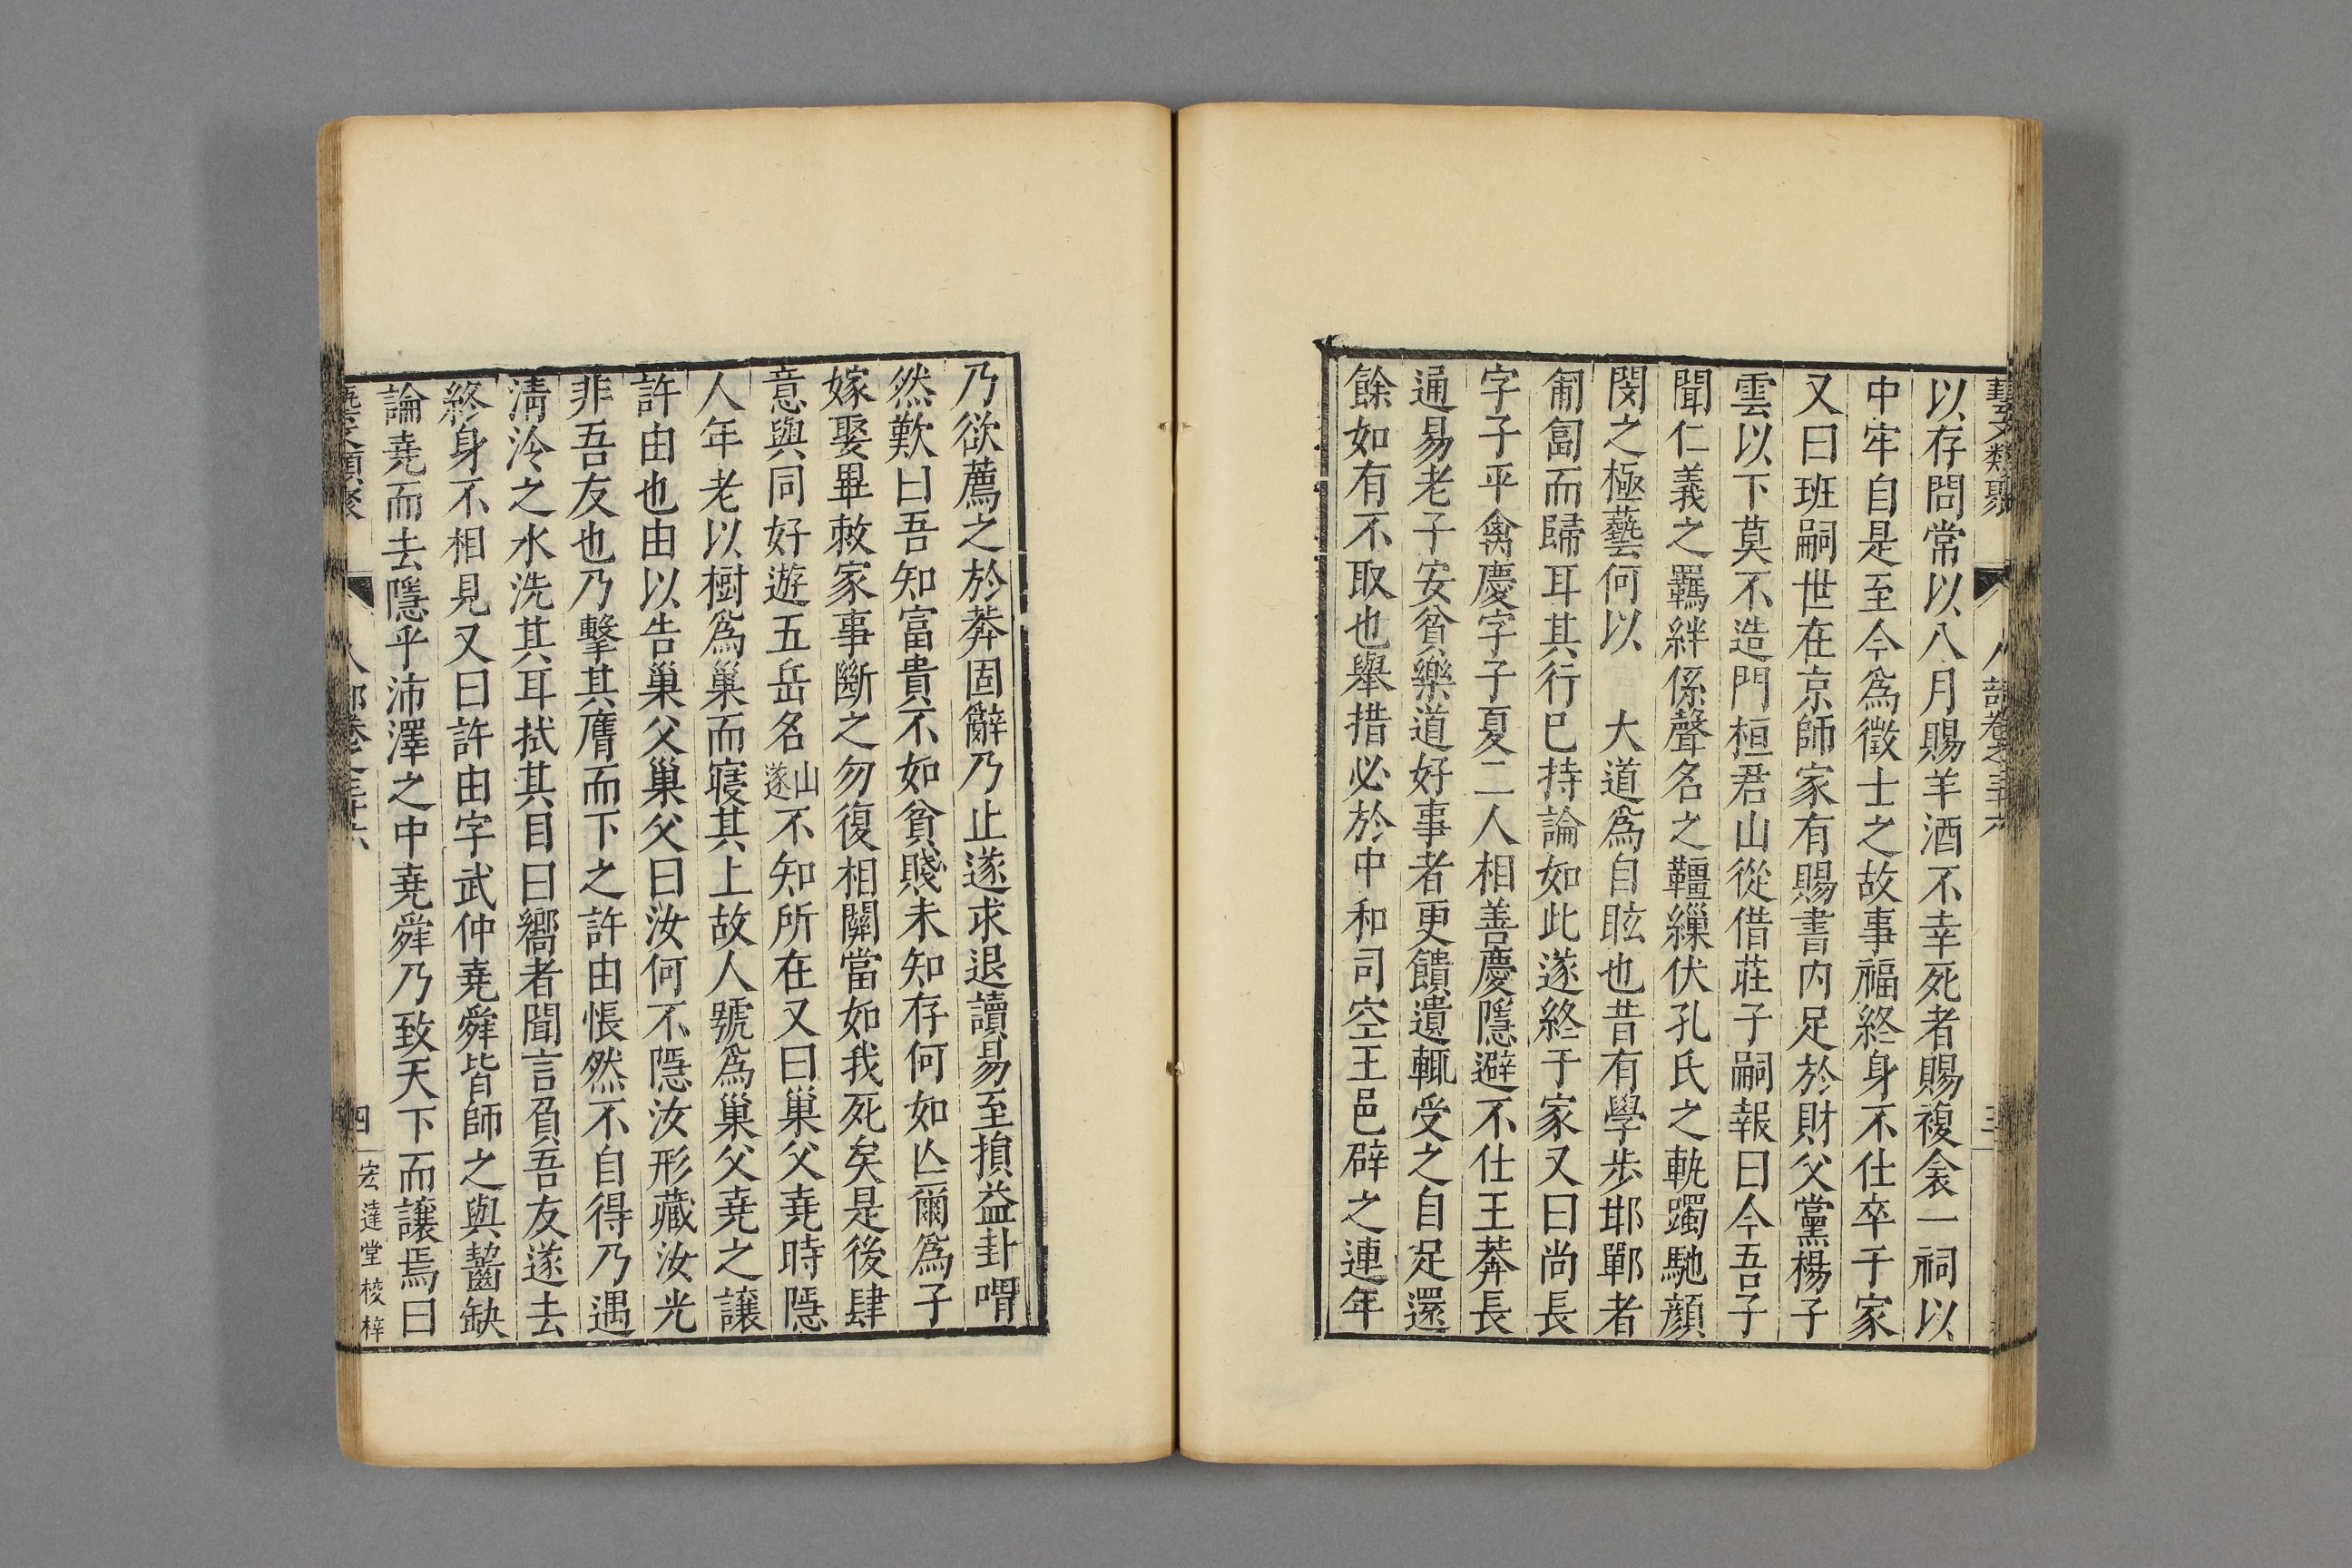 藝文類聚 人部卷之三十六 三
以存問常以八月賜羊酒不幸死者賜複衾一祠以
中牢自是至今為徵士之故事福終身不仕卒于家
又曰班嗣世在京師家有賜書內足於財父黨楊子
雲以下莫不造門桓君山從借莊子嗣報曰今吾子
聞仁義之羈絆係聲名之韁纆伏孔氏之軌躅馳顏
閔之極藝何以 大道為自眩也昔有學步邯鄲者
匍匐而歸耳其行已持論如此遂終于家又曰尚長
字子平禽慶字子夏二人相善慶隱避不仕王莽長
通易老子安貧樂道好事者更饋遺輒受之自足還
餘如有不取也舉措必於中和司空王邑辟之連年
乃欲薦之於莽固辭乃止遂求退讀易至損益卦喟
然歎曰吾知富貴不如貧賤未知存何如亾爾為子
嫁娶畢敕家事斷之勿復相關當如我死矣是後肆
意與同好遊五岳名山遂不知所在又曰巢父堯時隱
人年老以樹為巢而寢其上故人號為巢父堯之讓
許由也由以告巢父巢父曰汝何不隱汝形藏汝光
非吾友也乃擊其膺而下之許由悵然不自得乃遇
清泠之水洗其耳拭其目曰嚮者聞言負吾友遂去
終身不相見又曰許由字武仲堯舜皆師之與齧缺
論堯而去隱乎沛澤之中堯舜乃致天下而讓焉曰
藝文類聚 人部卷之三十六 四 宏達堂校梓